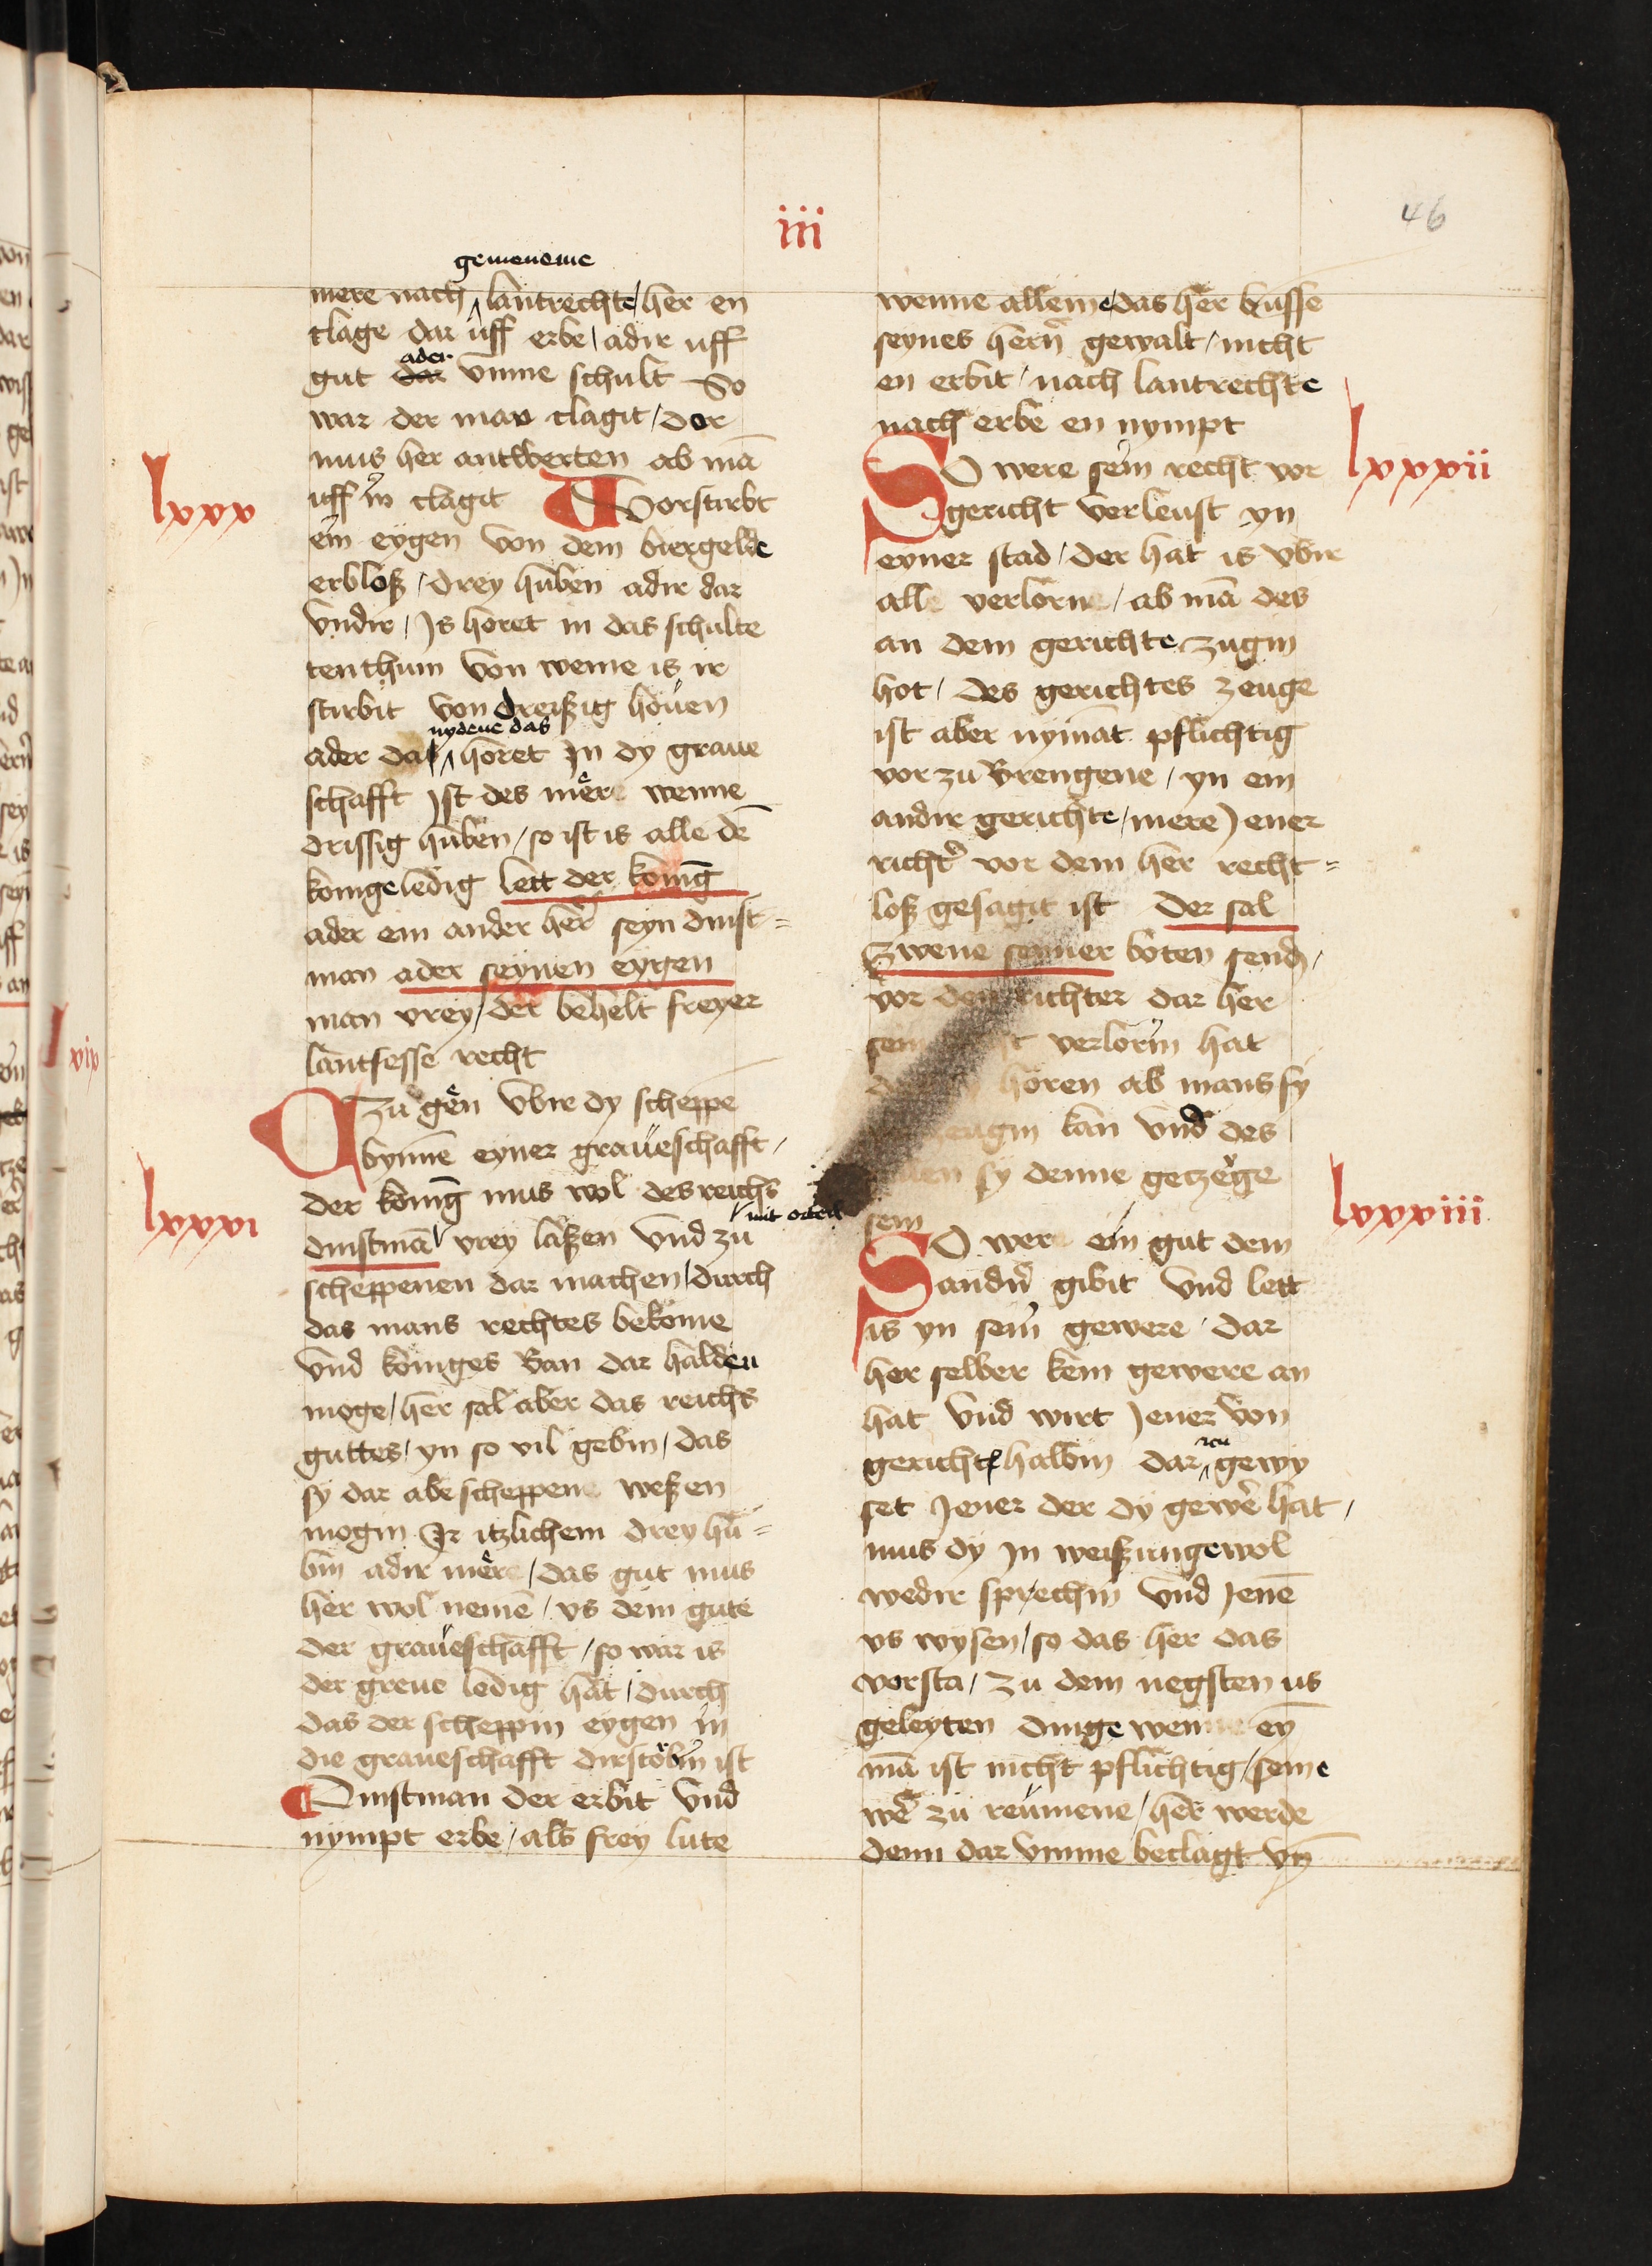 iii
46
gemeneme
mere nach lantrechte / her en
clage dar uff erbe / adir uff
ader
gut dar vmme schult So
war der man clagit / dor
mus her antwerten ab mā
uff in clagit Vorstirbt
lxxx
ein eygen von dem birgelde
erbloß / drey huben adir dar
vndir / Js horet in das schulte
tenthum von weme is ir
stirbit von dreißig höuen
nydene das
ader das horet Jn dy graue
schafft Jst des mere wenne
drissig huben / so ist is alle dē
konige ledig lett der konīg
ader ein ander herr seyn dinst=
man ader seynen eygen
man vrey / der behelt freyer
lantsesse recht
Czu gen vbir dy scheppe
bynnē eyner graueschafft /
der konīg mus wol des reichs
lxxxi
mit orteil
dinstmā vrey laßen vnd zu
scheppenen dar machen / durch
das mans rechtes bekome
vnd koniges Ban dar halden
moge / her sal aber das reichs
guttes / yn so vil gebin / das
sy dar abe scheppene weßen
mogin Ir itzlichem drey hu=
bin adir mere / das gut mus
her wol nemē / vs dem gute
der graueschafft / so war is
der greue ledig hat / durch
das der scheppin eygen in
die graueschafft dirstorbin ist
Dinstman der erbit vnd
nympt erbe / als frey lute
wenne alleine / das her busse
seynes hern gewalt / nicht
en erbit / nach lantrechte
nach erbe en nympt
SO were sein recht vor
lxxxii
gericht verleust yn
eyner stad / der hat is vbir
alle verlorne / ab mā des
an dem gerichte zugin
hot / des gerichtes zeuge
ist aber nymāt pflichtig
vor zu Brengene / yn ein
andir gerichte / mere Jener
richt' vor dem her recht=
loß gesagit ist Der sal
Zwene seiner boten send /
vor den richter dar her
sein verlorin hat
horen ab mans sy
zeugin kan vnd des
sy denne getzeuge
sein
lxxxiii
SO were ein gut dem
andn gibit vnd lett
is yn sein gewere / dar
her selber kein gewere an
hat vnd wirt Jener von
gericht halbin dar in gewy
set Jener der dy gewe hat /
mus dy Jn weißunge wol
wedir sprechin vnd Jenē
vs wysen / so das her das
vorsta / zu dem negsten us
geleyten dinge wenne ey
mā ist nicht pflichtig / seine
we zu reumene / her werde
denn dar vmme beclagt vn